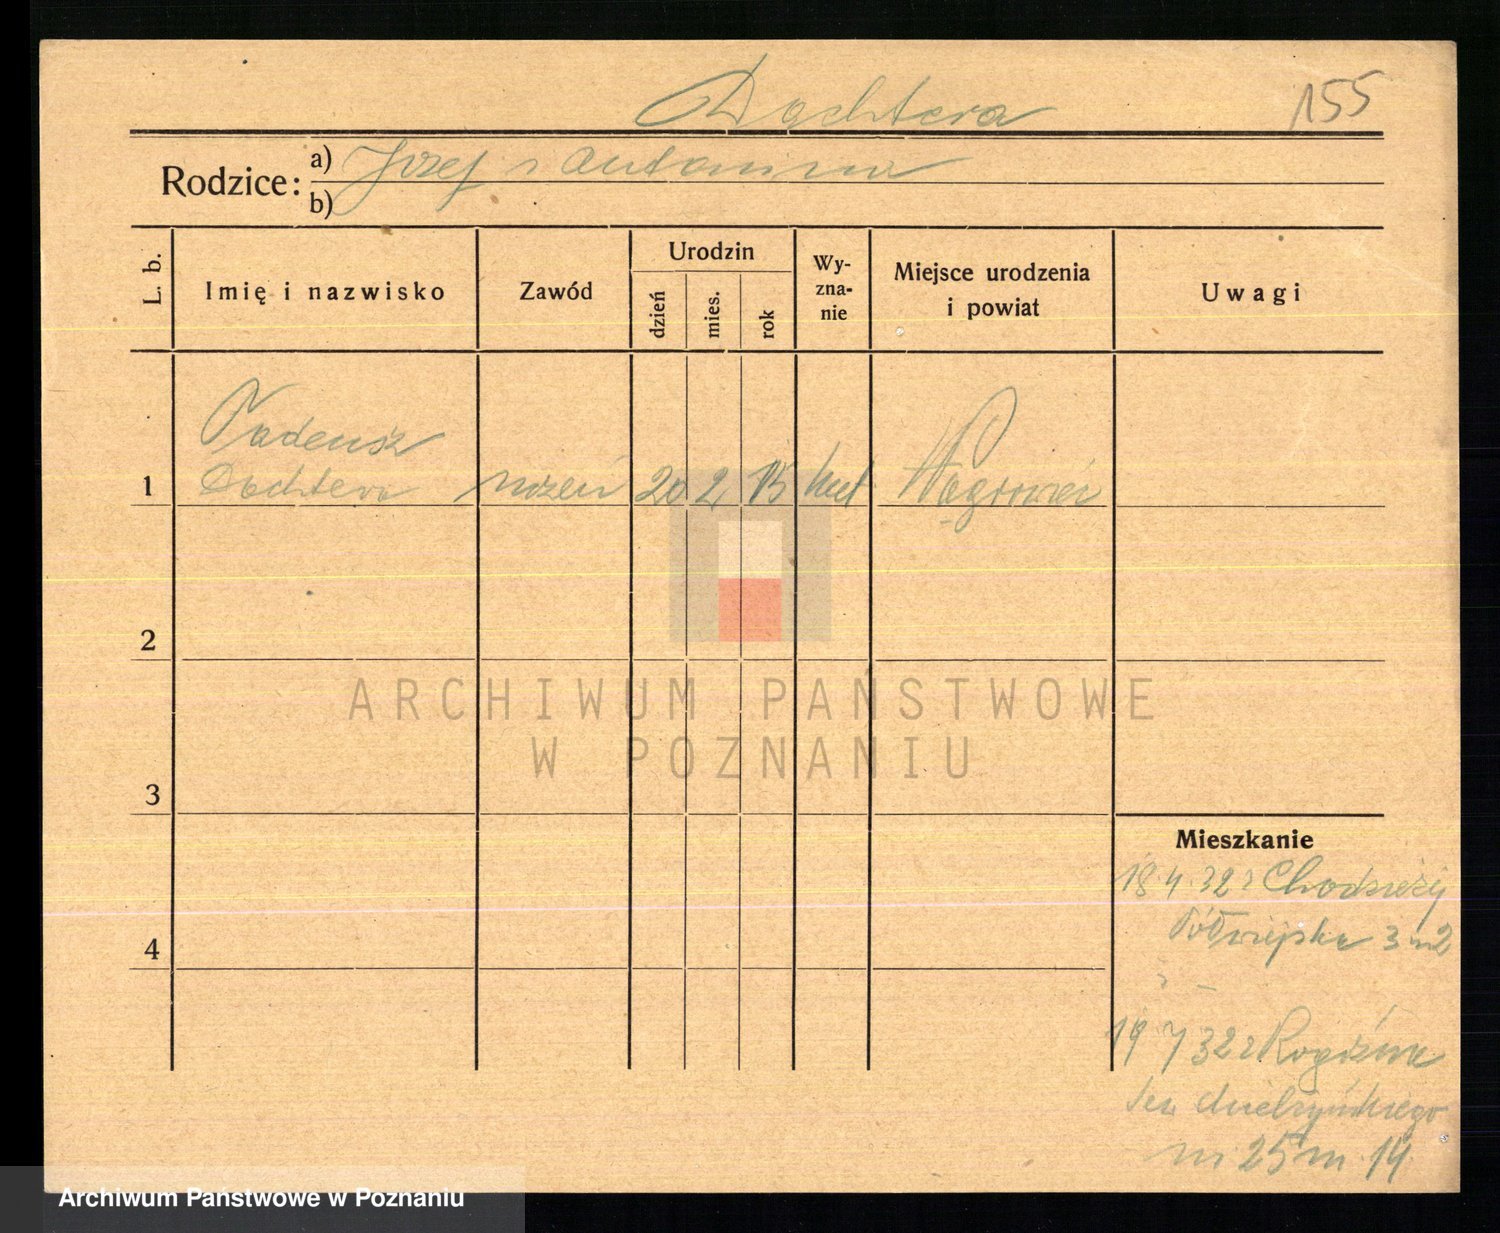 Dachtera 155
Rodzice: a) Józef i Antonina
b)
L. b. Imię i nazwisko Zawód Urodzin dzień mies. rok Wy-zna-nie Miejsce urodzenia i powiat Uwagi
Tadeusz
1 Dachtera uczeń 20 2 15 kat Wągrowiec
2
ARCHIWUM PAŃSTWOWE
W POZNANIU
3
Mieszkanie
18 4. 32 z Chodzieży
Półwiejska 3 m 2
4
19 7 32 z Rogoźna
Mielżyńskiego
m. 14
Archiwum Państwowe w Poznaniu